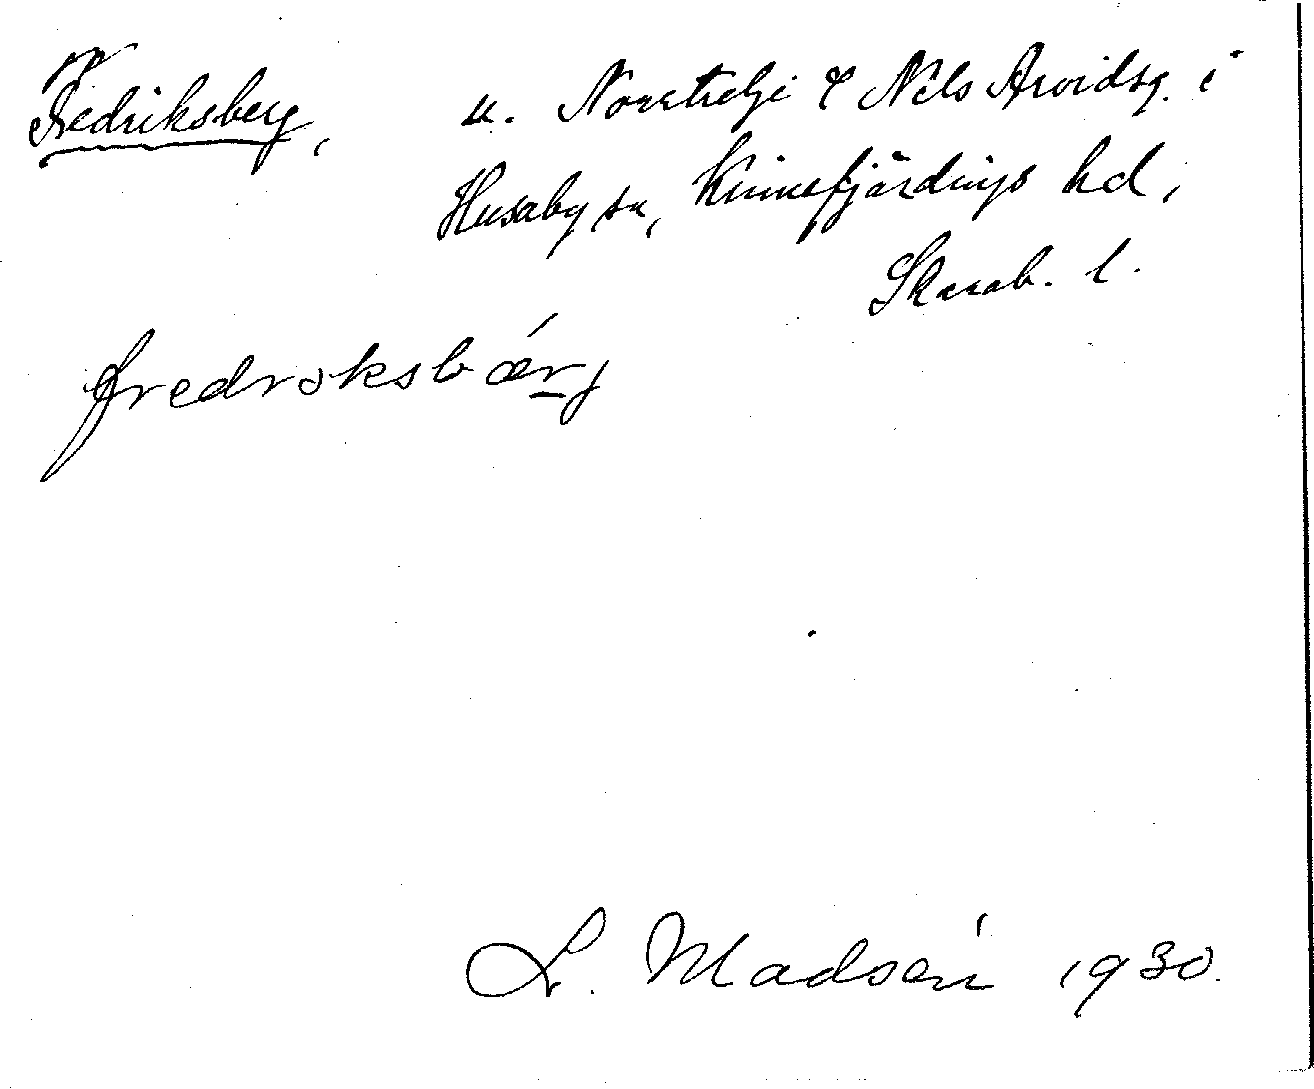 Fredriksberg, u. Norrtelje & Nils Arvidsg. i
Husaby sn, Kinnefjärdings hd,
Skarab. l.
fredrəksbǽrj
L. Madsén 1930.